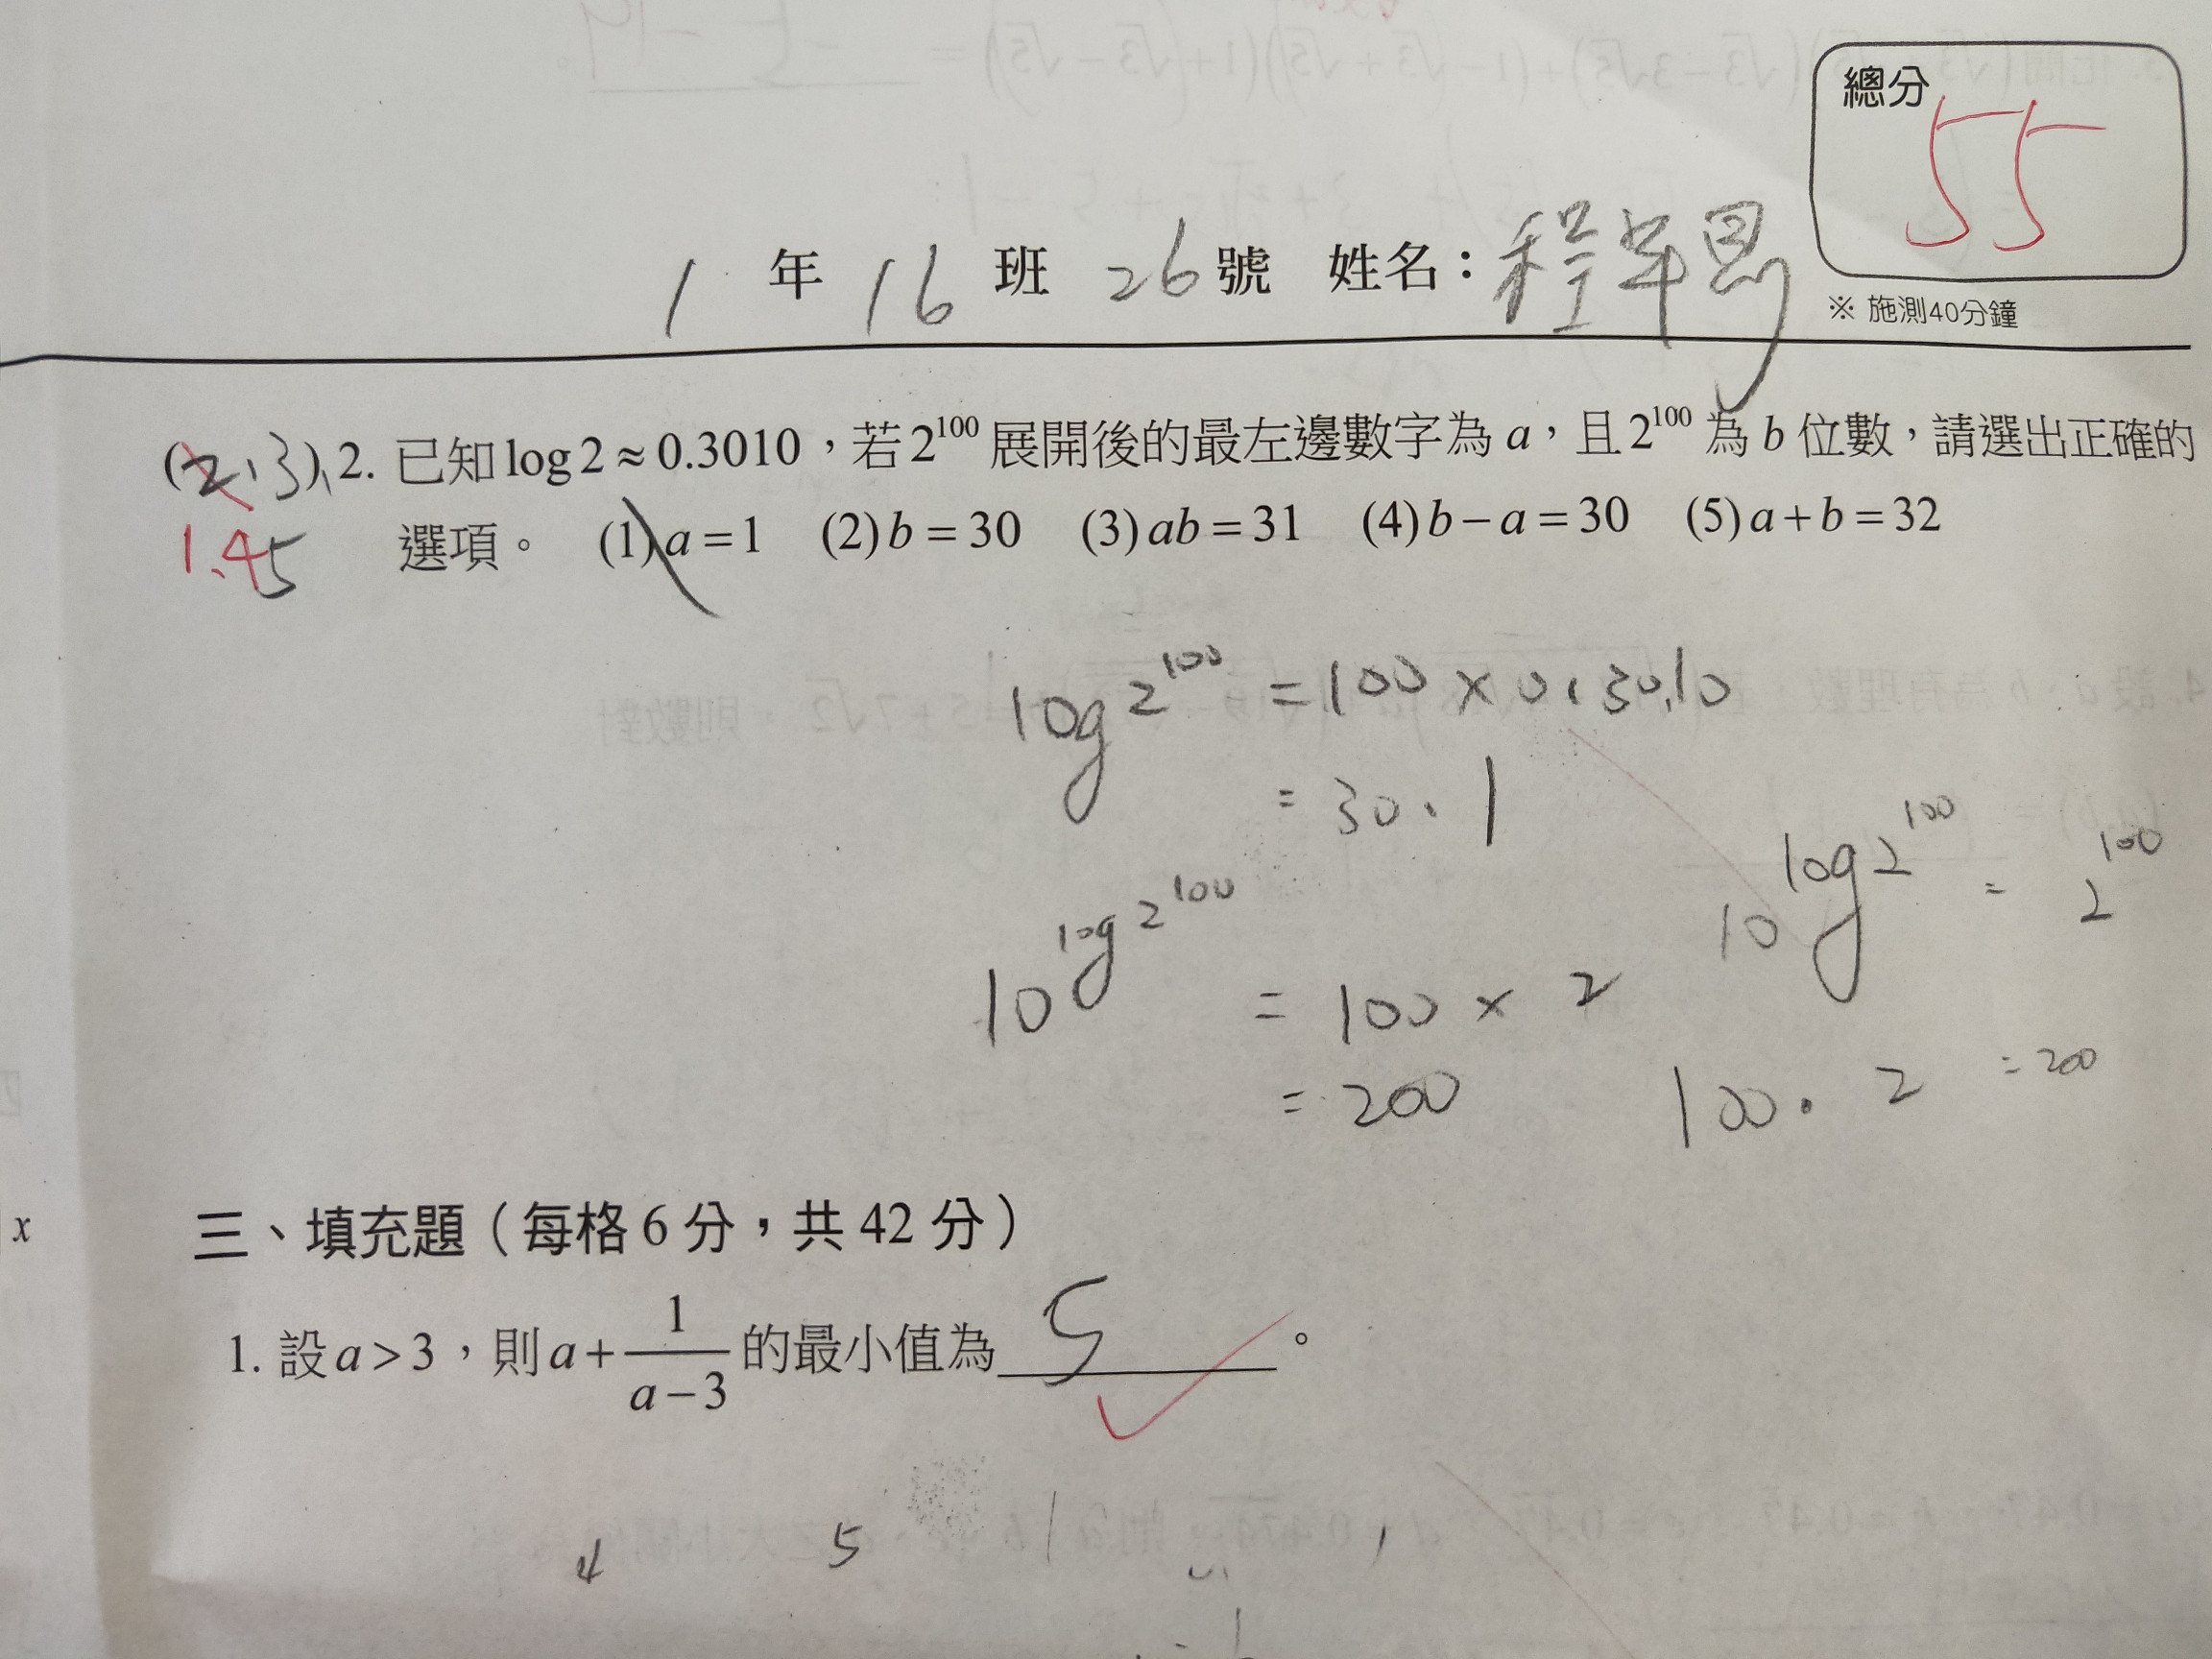 總分
55
1 年 16 班 26 號 姓名：程
※ 施測40分鐘
(2,3) 2. 已知 log 2 ≈ 0.3010，若 2^100 展開後的最左邊數字為 a，且 2^100 為 b 位數，請選出正確的
1.4 5 選項。 (1) a = 1 (2) b = 30 (3) ab = 31 (4) b − a = 30 (5) a + b = 32
log 2^100 = 100 × 0.3010
= 30.1
10^log 2^100 = 2^100
10^log 2^100 = 100 × 2
= 200
100 · 2 = 200
x
三、填充題（每格 6 分，共 42 分）
1. 設 a > 3，則 a + 1/(a − 3) 的最小值為 5 。
4 5